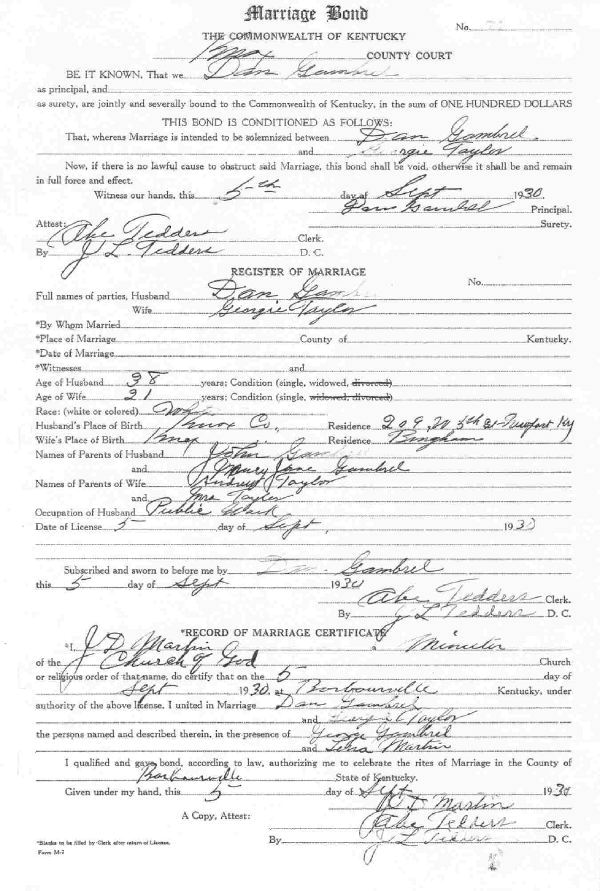 Marriage Bond
No.
THE COMMONWEALTH OF KENTUCKY
Knox COUNTY COURT
BE IT KNOWN, That we Dan Gambrel
as principal, and
as surety, are jointly and severally bound to the Commonwealth of Kentucky, in the sum of ONE HUNDRED DOLLARS
THIS BOND IS CONDITIONED AS FOLLOWS:
That, whereas Marriage is intended to be solemnized between Dan Gambrel
and Georgie Taylor
Now, if there is no lawful cause to obstruct said Marriage, this bond shall be void, otherwise it shall be and remain
in full force and effect.
Witness our hands, this 5th day of Sept 1930.
Dan Gambrel Principal.
Attest: Surety.
Abe Tedders Clerk.
By J L Tedders D. C.
REGISTER OF MARRIAGE
No.
Full names of parties, Husband Dan Gambrel
Wife Georgie Taylor
*By Whom Married
*Place of Marriage County of Kentucky.
*Date of Marriage
*Witnesses and
Age of Husband 38 years; Condition (single, widowed, divorced)
Age of Wife 21 years; Condition (single, widowed, divorced)
Race: (white or colored) White
Husband's Place of Birth Knox Co, Residence 209 W 5th St Newport Ky
Wife's Place of Birth Knox Residence Bingham
Names of Parents of Husband John Gambrel
and Mary Jane Gambrel
Names of Parents of Wife Taylor
and Mrs Taylor
Occupation of Husband Public Work
Date of License 5 day of Sept, 1930
Subscribed and sworn to before me by Dan Gambrel
this 5 day of Sept 1930
Abe Tedders Clerk.
By J L Tedders D. C.
*RECORD OF MARRIAGE CERTIFICATE
*I, J D Martin a Minister
of the Church of God Church
or religious order of that name, do certify that on the 5 day of
Sept 1930. at Barbourville Kentucky, under
authority of the above license, I united in Marriage Dan Gambrel
and Georgie Taylor
the persons named and described therein, in the presence of George Gambrel
and Martin
I qualified and gave bond, according to law, authorizing me to celebrate the rites of Marriage in the County of
Barbourville State of Kentucky.
Given under my hand, this 5 day of Sept 1930
J D Martin
A Copy, Attest: Abe Tedders Clerk.
By J L Tedders D. C.
*Blanks to be filled by Clerk after return of License.
Form M-2